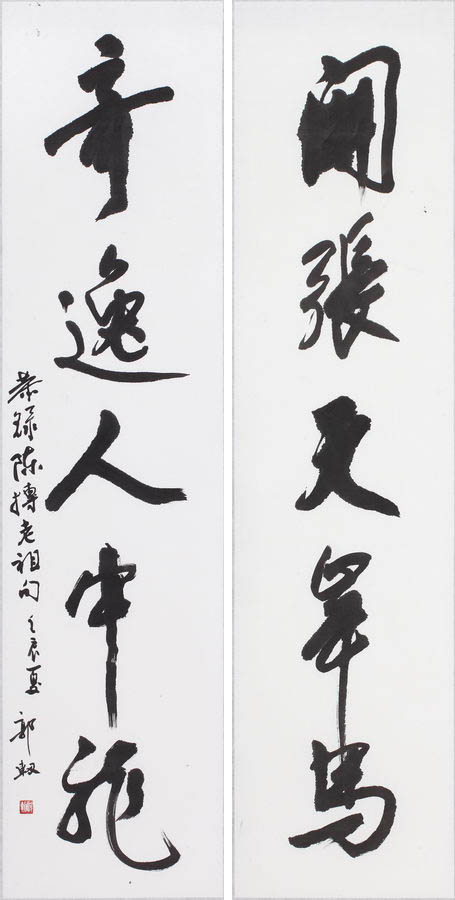 開張天岸馬
奇逸人中龍
恭録陈摶老祖句 壬辰夏 郭